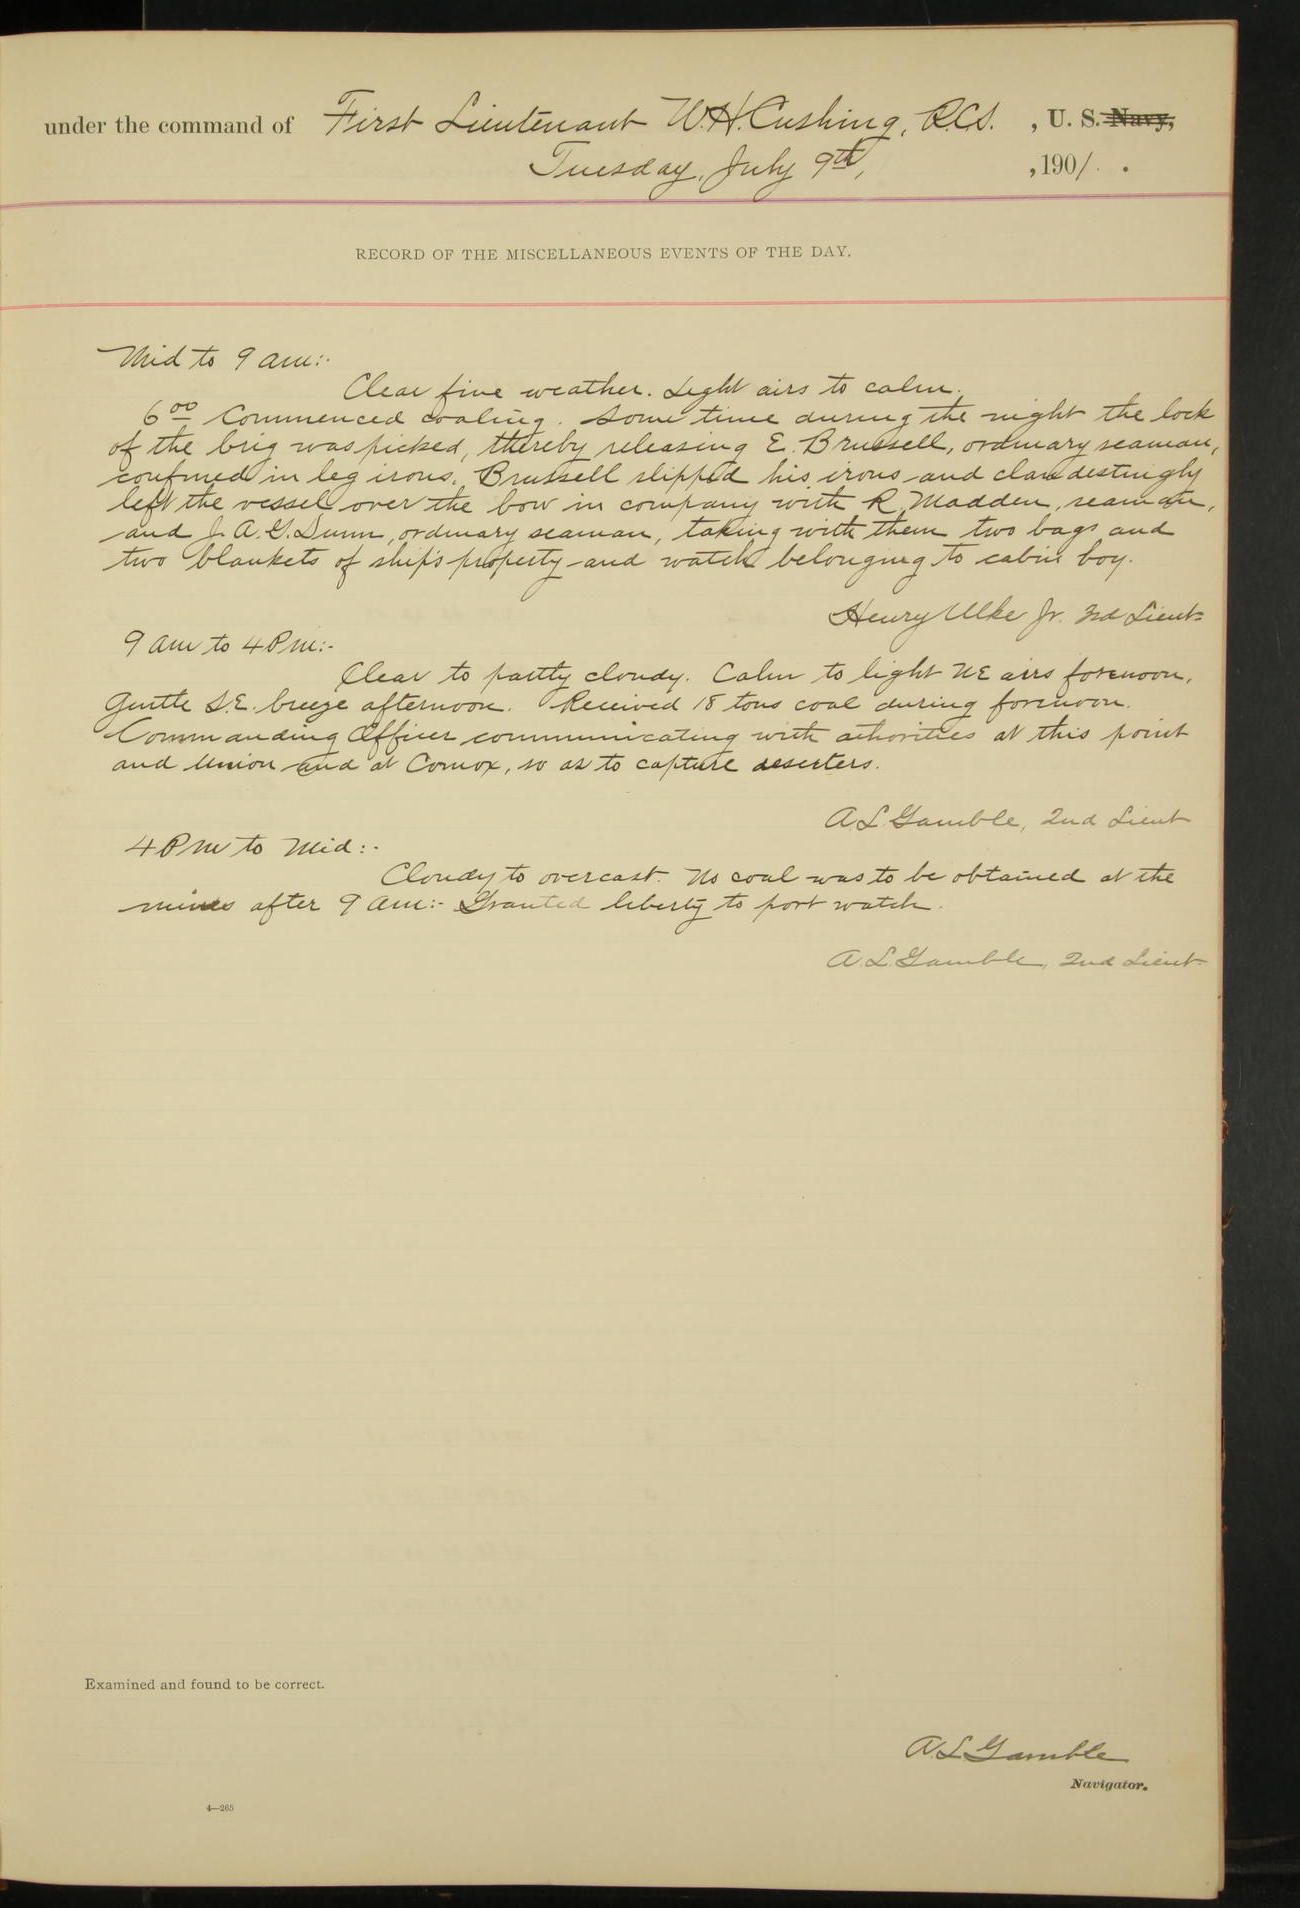 under the command of First Lieutenant W. H. Cushing, R.C.S. , U. S. Navy,
Tuesday, July 9th, , 1901 .
RECORD OF THE MISCELLANEOUS EVENTS OF THE DAY.
Mid to 9 am:-
Clear fine weather. Light airs to calm.
6 00 Commenced coaling. Some time during the night the lock
of the brig was picked, thereby releasing E. Brussell, ordinary seaman,
confined in leg irons. Brussell slipped his irons and clandestingly
left the vessel over the bow in company with R. Madden, seaman,
and J. A. G. Dunn, ordinary seaman, taking with them two bags and
two blankets of ship's property and watch belonging to cabin boy.
Henry Ulke Jr. 3rd Lieut-
9 am to 4 Pm:-
Clear to partly cloudy. Calm to light NE airs forenoon,
Gentle S.E. breeze afternoon. Received 18 tons coal during forenoon.
Commanding Officer communicating with athorities at this point
and Union and at Comox, so as to capture deserters.
A. L. Gamble, 2nd Lieut
4 Pm to Mid:-
Cloudy to overcast. No coal was to be obtained at the
mines after 9 am:- Granted liberty to port watch.
A. L. Gamble, 2nd Lieut-
Examined and found to be correct.
A. L. Gamble
Navigator.
4—265